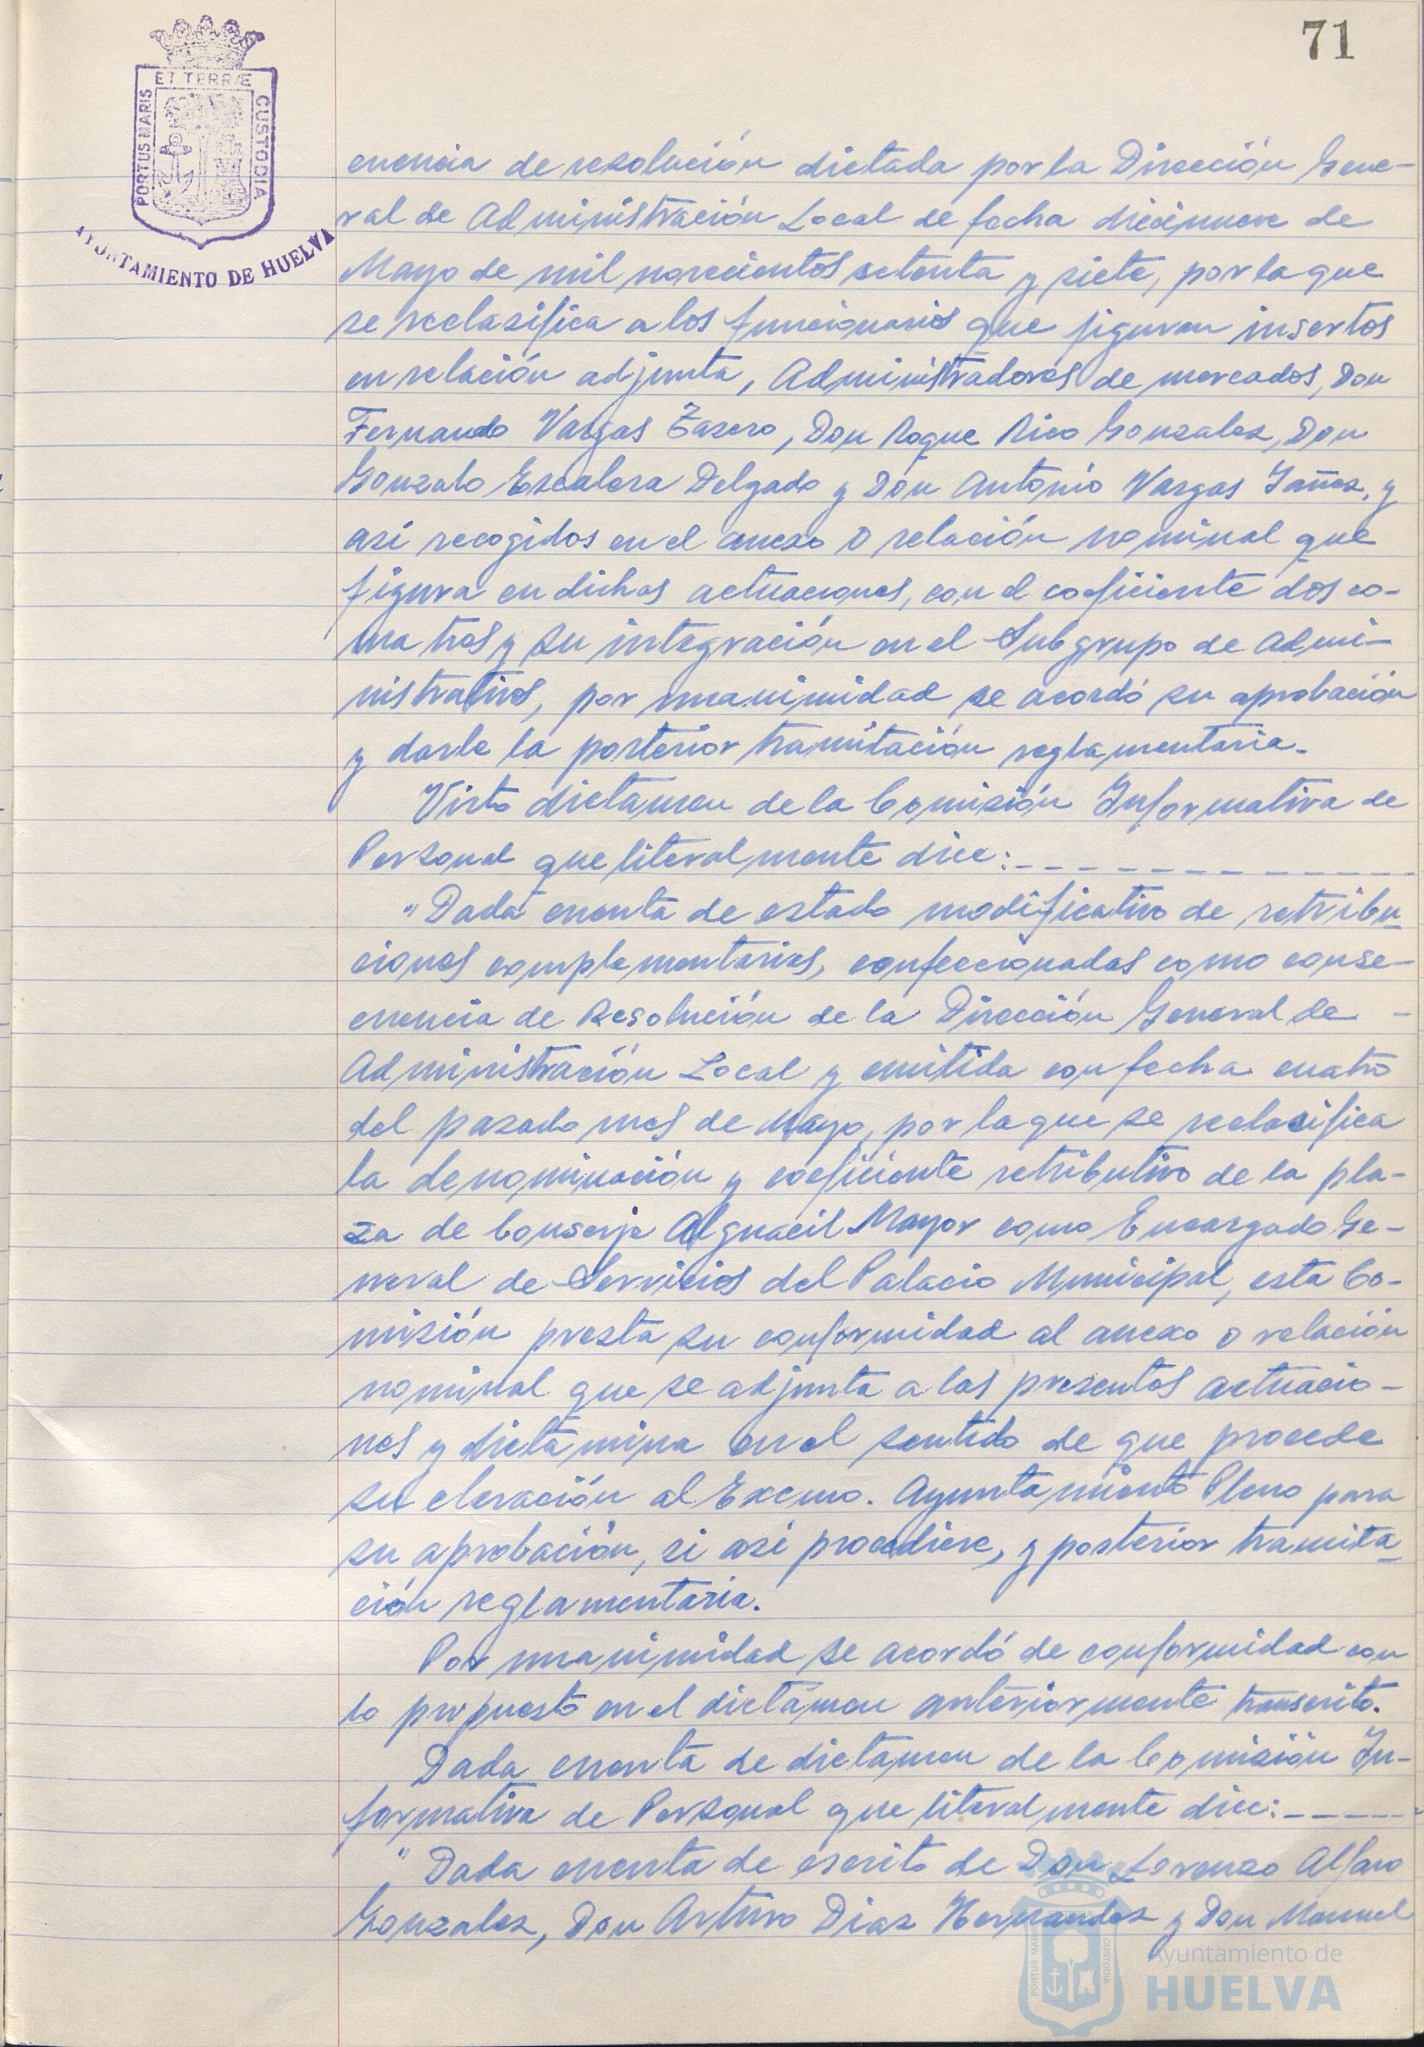 71
ET TERRÆ
PORTUS MARIS
CUSTODIA
AYUNTAMIENTO DE HUELVA
cuencia de resolución dictada por la Dirección Gene-
ral de Administración Local de fecha diecinueve de
Mayo de mil novecientos setenta y siete, por la que
se reclasifica a los funcionarios que figuran insertos
en relación adjunta, Administradores de mercados, Don
Fernando Vargas Zasero, Don Roque Rico Gonzalez, Don
Gonzalo Escalera Delgado y Don Antonio Vargas Yañez, y
asi recogidos en el anexo o relación nominal que
figura en dichas actuaciones, con el coeficiente dos co-
ma tres y su integración en el Subgrupo de Admi-
nistrativos, por unanimidad se acordó su aprobación
y darle la posterior tramitación reglamentaria.
Visto dictamen de la Comisión Informativa de
Personal que literalmente dice:- - - - - - - - - - - -
"Dada cuenta de estado modificativo de retribu-
ciones complementarias, confeccionadas como conse-
cuencia de Resolución de la Dirección General de -
Administración Local y emitida con fecha cuatro
del pasado mes de Mayo, por la que se reclasifica
la denominación y coeficiente retributivo de la pla-
za de Conserje Alguacil Mayor como Encargado Ge-
neral de Servicios del Palacio Municipal, esta Co-
misión presta su conformidad al anexo o relación
nominal que se adjunta a las presentes actuacio-
nes y dictamina en el sentido de que procede
su elevación al Excmo. Ayuntamiento Pleno para
su aprobación, si asi procediere, y posterior tramita-
ción reglamentaria.
Por unanimidad se acordó de conformidad con
lo propuesto en el dictamen anteriormente transcrito.
Dada cuenta de dictamen de la Comisión In-
formativa de Personal que literalmente dice:- - - - -
"Dada cuenta de escrito de Don Lorenzo Alfaro
Gonzalez, Don Arturo Diaz Hernandez y Don Manuel
Ayuntamiento de
HUELVA